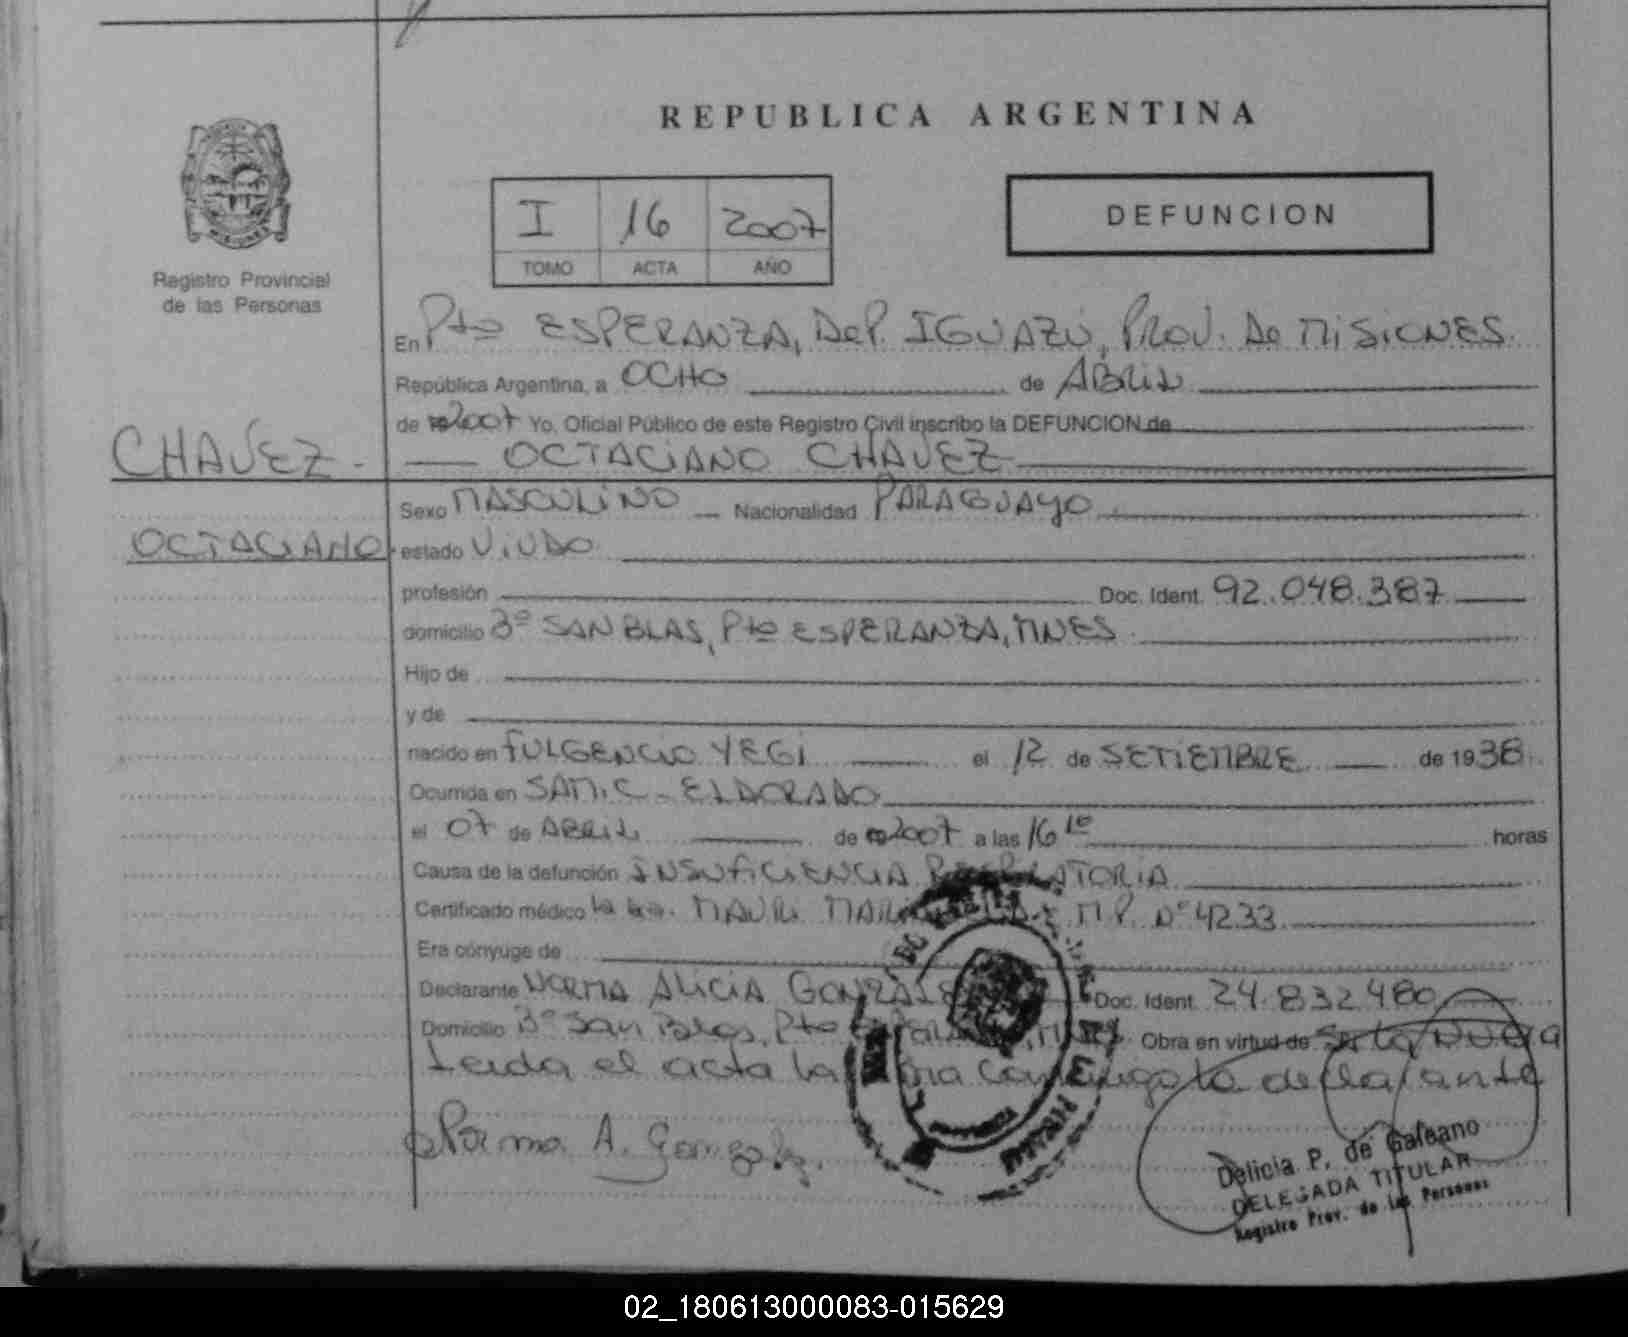 REPUBLICA ARGENTINA
I 16 2007
TOMO ACTA AÑO
DEFUNCION
Registro Provincial
de las Personas
En Pto ESPERANZA, DeP. IGUAZÚ, PROV. De MISIONES.
República Argentina, a OCHO de ABRIL
de 2007 Yo, Oficial Público de este Registro Civil inscribo la DEFUNCION de
CHAVEZ - OCTACIANO CHAVEZ
Sexo MASCULINO Nacionalidad PARAGUAYO
OCTACIANO estado VIUDO
profesión Doc. Ident. 92.048.387
domicilio Bº SAN BLAS, Pto ESPERANZA, MNES
Hijo de
y de
nacido en FULGENCIO YEGI el 12 de SETIEMBRE de 1938
Ocurrida en SAMIC - ELDORADO
el 07 de ABRIL de 2007 a las 16 10 horas
Causa de la defunción INSUFICIENCIA RESPIRATORIA
Certificado médico M.P. Nº 4233
Era cónyuge de
Declarante NORMA ALICIA GONZALEZ Doc. Ident. 24.832.480
Domicilio Bº San Blas, Pto Obra en virtud de
Leida el acta la firma conmigo la declarante
Norma A. Gonzalez
Delicia P. de Galeano
DELEGADA TITULAR
Registro Prov. de las Personas
02_180613000083-015629